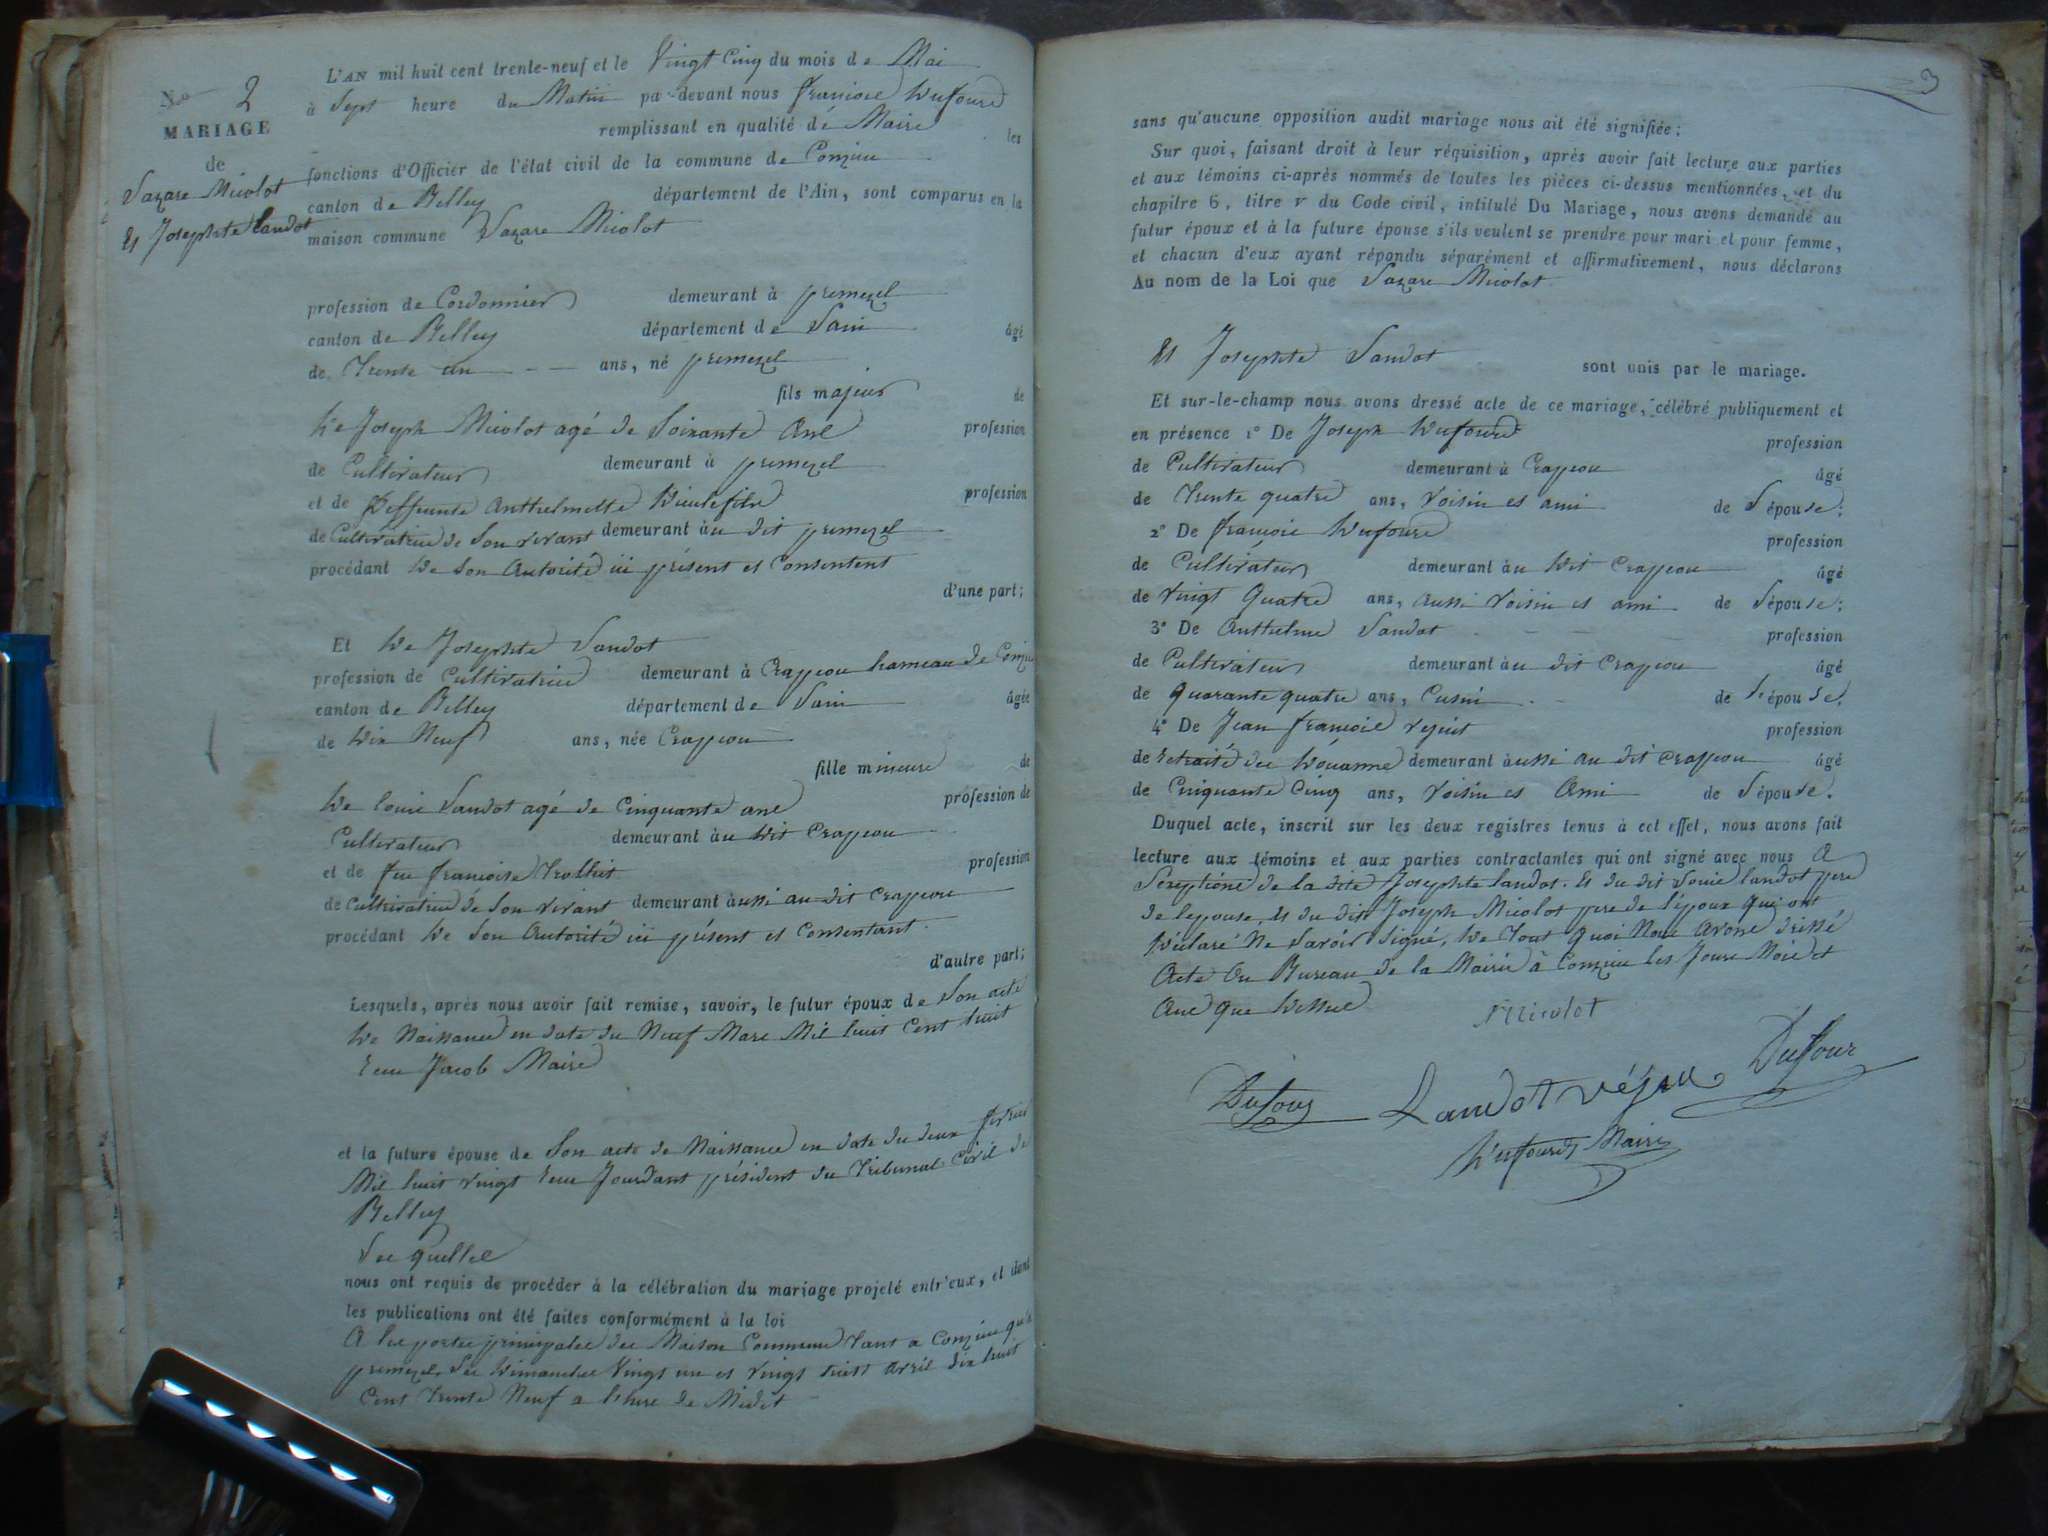 No 2
MARIAGE
de
Lazare Micolot
Et Josephte Landot
L'AN mil huit cent trente-neuf et le Vingt Cinq du mois de Mai
à Sept heure du Matin pa devant nous francois Dufourd
remplissant en qualité de Maire les
fonctions d'Officier de l'état civil de la commune de Conzieu
canton de Belley département de l'Ain, sont comparus en la
maison commune Lazare Micolot
profession de Cordonnier demeurant à premezel
canton de Belley département de Lain âgé
de Trente un ans, né premezel
fils majeur de
De Joseph Micolot agé de Soixante Ans profession
de Cultivateur demeurant à premezel
et de Deffunte Anthelmette profession
de Cultivatrice de Son vivant demeurant à u dit premezel
procédant De Son Autorité ici présent et Consentent
d'une part;
Et De Josephte Landot
profession de Cultivatrice demeurant à Crappeou hameau de Conzieu
canton de Belley département de Lain âgée
de Dix Neuf ans, née Crappeou
fille mineure de
De Louis Landot agé de Cinquante ans profession de
Cultivateur demeurant à u Dit Crappeou
et de feu francoise Trolliet profession
de Cultivatrice de Son vivant demeurant à ussi au dit Crappeou
procédant De Son Autorité ici présent et Consentant.
d'autre part;
Lesquels, après nous avoir fait remise, savoir, le futur époux de Son acte
De Naissance en date du Neuf Mars Mil huit Cent huit
Jacob Maire
et la future épouse de Son acte de Naissance en date du deux fevrier
Mil huit vingt Jourdant président du Tribunal Civil de
Belley
Les quelles
nous ont requis de procéder à la célébration du mariage projeté entr'eux, et dont
les publications ont été faites conformément à la loi
A les portes principales des Maison Commune Tant a Conzieu qu'a
premezel, Les Dimanches Vingt un et vingt huit Avril dix huit
Cent Trente Neuf a lhure de Midit
3
sans qu'aucune opposition audit mariage nous ait été signifiée;
Sur quoi, faisant droit à leur réquisition, après avoir fait lecture aux parties
et aux témoins ci-après nommés de toutes les pièces ci-dessus mentionnées, et du
chapitre 6, titre v du Code civil, intitulé Du Mariage, nous avons demandé au
futur époux et à la future épouse s'ils veulent se prendre pour mari et pour femme,
et chacun d'eux ayant répondu séparément et affirmativement, nous déclarons
Au nom de la Loi que Lazare Micolot
Et Josephte Landot sont unis par le mariage.
Et sur-le-champ nous avons dressé acte de ce mariage, célébré publiquement et
en présence 1° De Joseph Dufourd profession
de Cultivateur demeurant à Crappeou âgé
de Trente quatre ans, Voisin et ami de L'épouse;
2° De francois Dufourd profession
de Cultivateur demeurant à u Dit Crappeou âgé
de Vingt Quatre ans, aussi Voisin et ami de L'épouse;
3° De Anthelme Landot profession
de Cultivateur demeurant à u dit Crappeou âgé
de Quarante quatre ans, Cusin de L'épouse;
4° De Jean francois profession
de retraité des Douanne demeurant à ussi au dit Crappeou âgé
de Cinquante Cinq ans, Voisin et Ami de L'épouse.
Duquel acte, inscrit sur les deux registres tenus à cet effet, nous avons fait
lecture aux témoins et aux parties contractantes qui ont signé avec nous A
Lexeptione de la dite Josephte landot. Et du dit Louis landot pere
de lepouse, Et du dit Joseph Micolot pere de lépoux qui ont
Déclaré Ne Savoir Signé, De Tout Quoi Nous Avons dressé
Acte Au Bureau de la Mairie à Conzieu les Jours Mois et
Ans que Dessus
Micolot
Dufour Landot Véjeu Dufour
Dufourd, Maire